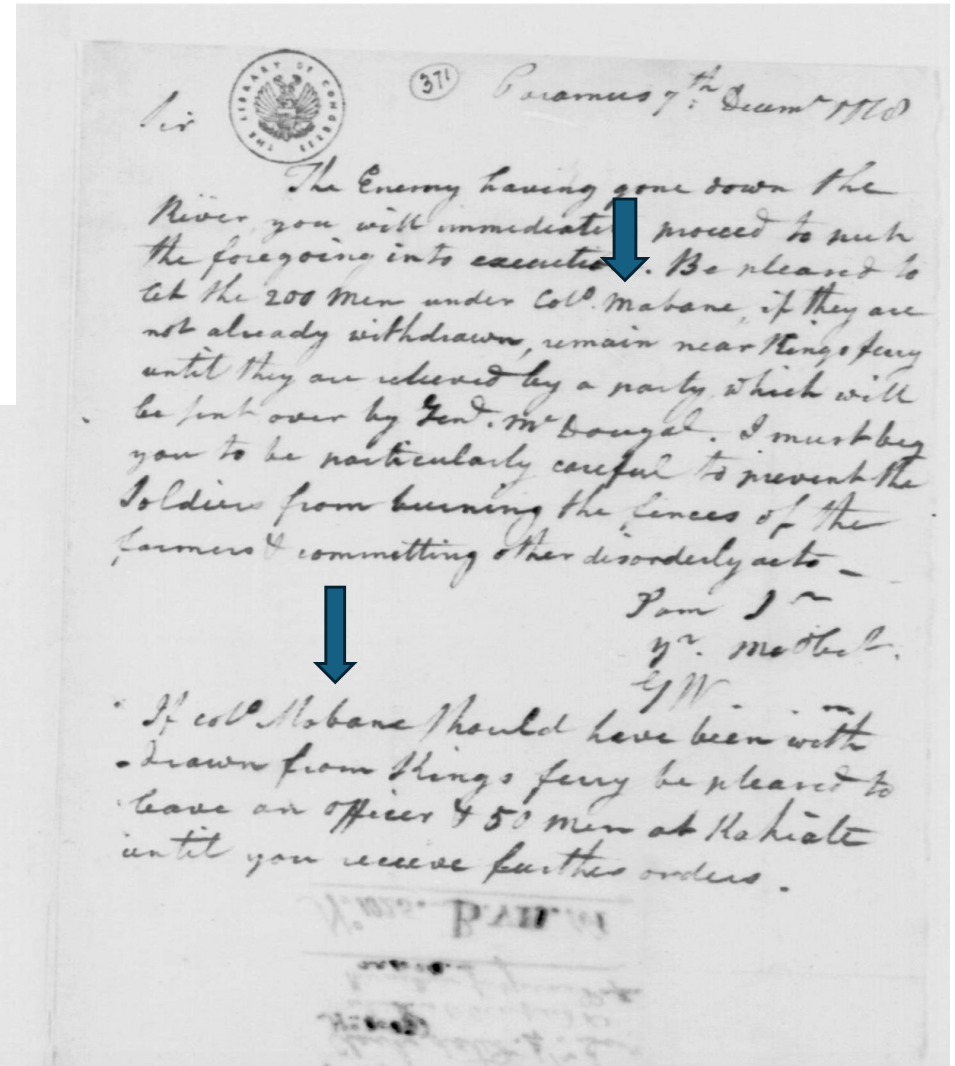 THE LIBRARY OF CONGRESS
371
Paramus 7th: Decemr 1778
Sir
The Enemy having gone down the
River, you will immediately proceed to put
the foregoing into execution. Be pleased to
let the 200 Men under Colo. Mabane, if they are
not already withdrawn, remain near Kings ferry
until they are relieved by a party which will
be sent over by Genl. McDougal. I must beg
you to be particularly careful to prevent the
Soldiers from burning the fences of the
farmers & committing other disorderly acts _
I am Sr
yr. Most Obet.
GW.
If colo Mabane should have been with
drawn from Kings ferry be pleased to
leave an officer & 50 Men at Kakiate
until you receive further orders.